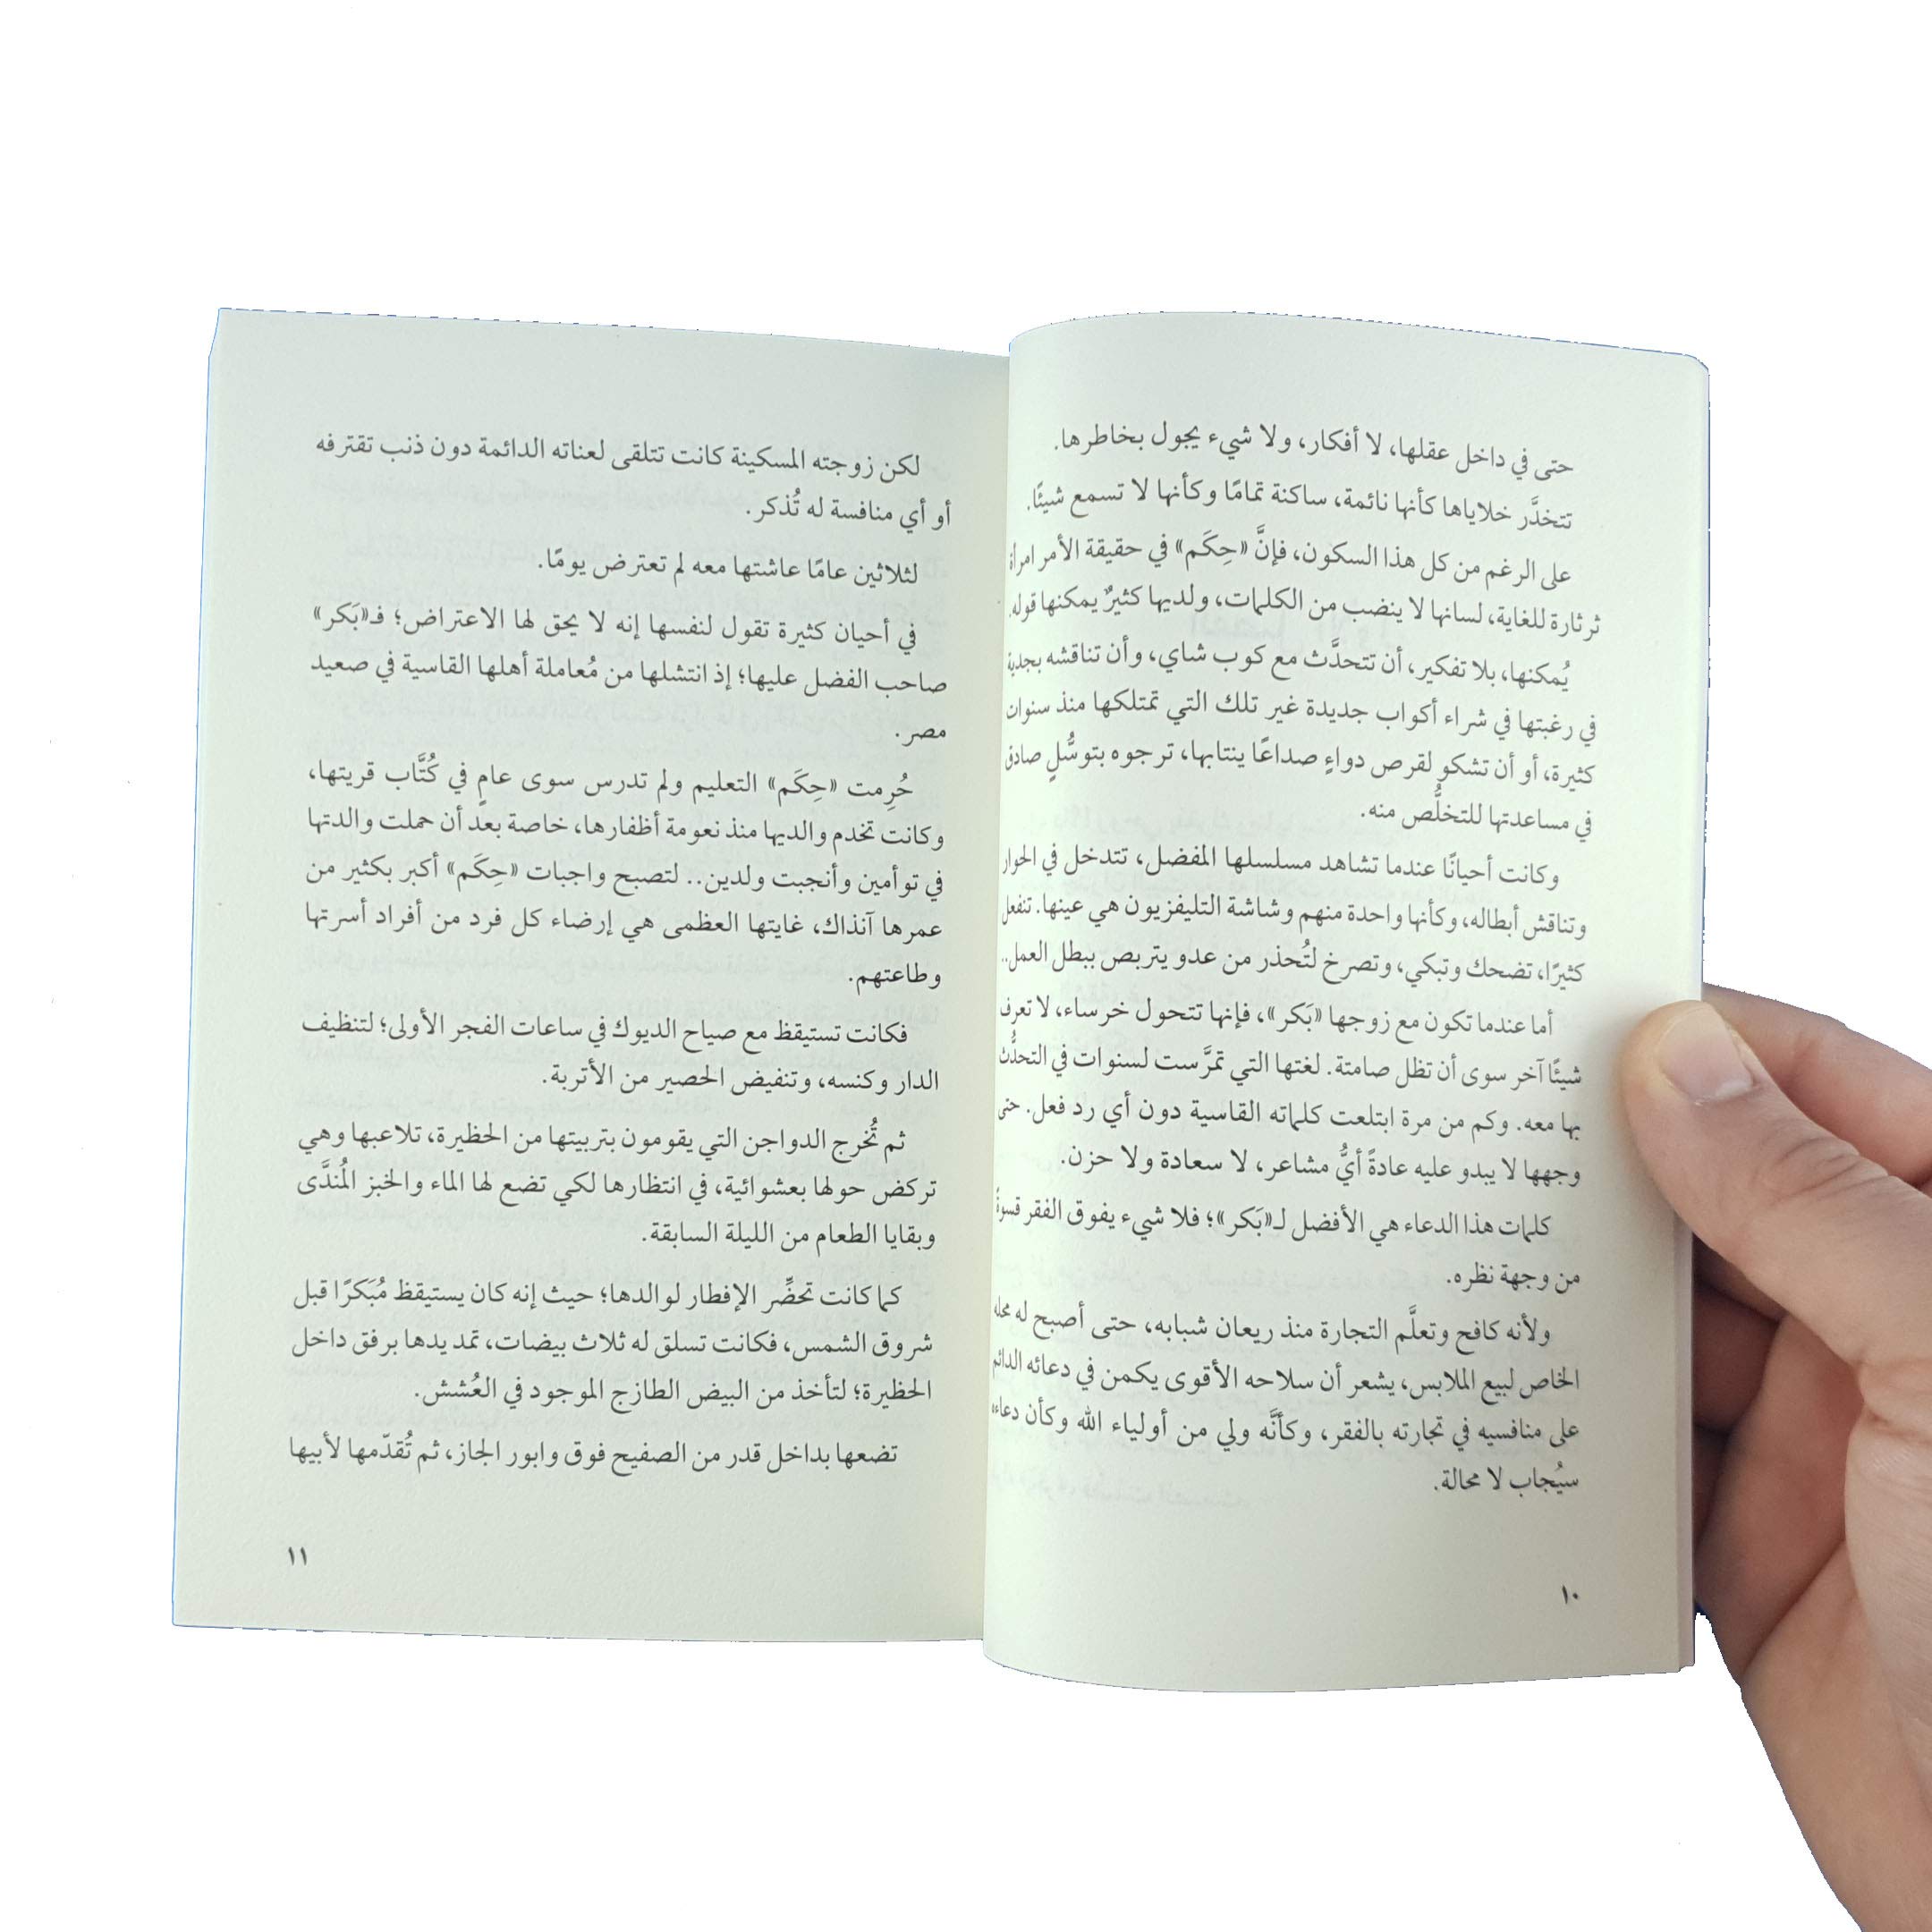 حتى في داخل عقلها، لا أفكار، ولا شيء يجول بخاطرها.
تتخدَّر خلاياها كأنها نائمة، ساكنة تمامًا وكأنها لا تسمع شيئًا.
على الرغم من كل هذا السكون، فإنَّ «حِكَم» في حقيقة الأمر امرأة
ثرثارة للغاية، لسانها لا ينضب من الكلمات، ولديها كثيرٌ يمكنها قوله.
يُمكنها، بلا تفكير، أن تتحدَّث مع كوب شاي، وأن تناقشه بجدية
في رغبتها في شراء أكواب جديدة غير تلك التي تمتلكها منذ سنوات
كثيرة، أو أن تشكو لقرص دواءٍ صداعًا ينتابها، ترجوه بتوسُّلٍ صادق
في مساعدتها للتخلُّص منه.
وكانت أحيانًا عندما تشاهد مسلسلها المفضل، تتدخل في الحوار
وتناقش أبطاله، وكأنها واحدة منهم وشاشة التليفزيون هي عينها. تنفعل
كثيرًا، تضحك وتبكي، وتصرخ لتُحذر من عدو يتربص ببطل العمل..
أما عندما تكون مع زوجها «بَكر»، فإنها تتحول خرساء، لا تعرف
شيئًا آخر سوى أن تظل صامتة. لغتها التي تمرَّست لسنوات في التحدُّث
بها معه. وكم من مرة ابتلعت كلماته القاسية دون أي رد فعل. حتى
وجهها لا يبدو عليه عادةً أيُّ مشاعر، لا سعادة ولا حزن.
كلمات هذا الدعاء هي الأفضل لـ«بَكر»؛ فلا شيء يفوق الفقر قسوةً
من وجهة نظره.
ولأنه كافح وتعلَّم التجارة منذ ريعان شبابه، حتى أصبح له محله
الخاص لبيع الملابس، يشعر أن سلاحه الأقوى يكمن في دعائه الدائم
على منافسيه في تجارته بالفقر، وكأنَّه ولي من أولياء الله وكأن دعاءه
سيُجاب لا محالة.
١٠
لكن زوجته المسكينة كانت تتلقى لعناته الدائمة دون ذنب تقترفه
أو أي منافسة له تُذكر.
لثلاثين عامًا عاشتها معه لم تعترض يومًا.
في أحيان كثيرة تقول لنفسها إنه لا يحق لها الاعتراض؛ فـ«بَكر»
صاحب الفضل عليها؛ إذ انتشلها من مُعاملة أهلها القاسية في صعيد
مصر.
حُرِمت «حِكَم» التعليم ولم تدرس سوى عامٍ في كُتَّاب قريتها،
وكانت تخدم والديها منذ نعومة أظفارها، خاصة بعد أن حملت والدتها
في توأمين وأنجبت ولدين.. لتصبح واجبات «حِكَم» أكبر بكثير من
عمرها آنذاك، غايتها العظمى هي إرضاء كل فرد من أفراد أسرتها
وطاعتهم.
فكانت تستيقظ مع صياح الديوك في ساعات الفجر الأولى؛ لتنظيف
الدار وكنسه، وتنفيض الحصير من الأتربة.
ثم تُخرج الدواجن التي يقومون بتربيتها من الحظيرة، تلاعبها وهي
تركض حولها بعشوائية، في انتظارها لكي تضع لها الماء والخبز المُندَّى
وبقايا الطعام من الليلة السابقة.
كما كانت تحضِّر الإفطار لوالدها؛ حيث إنه كان يستيقظ مُبَكرًا قبل
شروق الشمس، فكانت تسلق له ثلاث بيضات، تمد يدها برفق داخل
الحظيرة؛ لتأخذ من البيض الطازج الموجود في العُشش.
تضعها بداخل قدر من الصفيح فوق وابور الجاز، ثم تُقدّمها لأبيها
١١